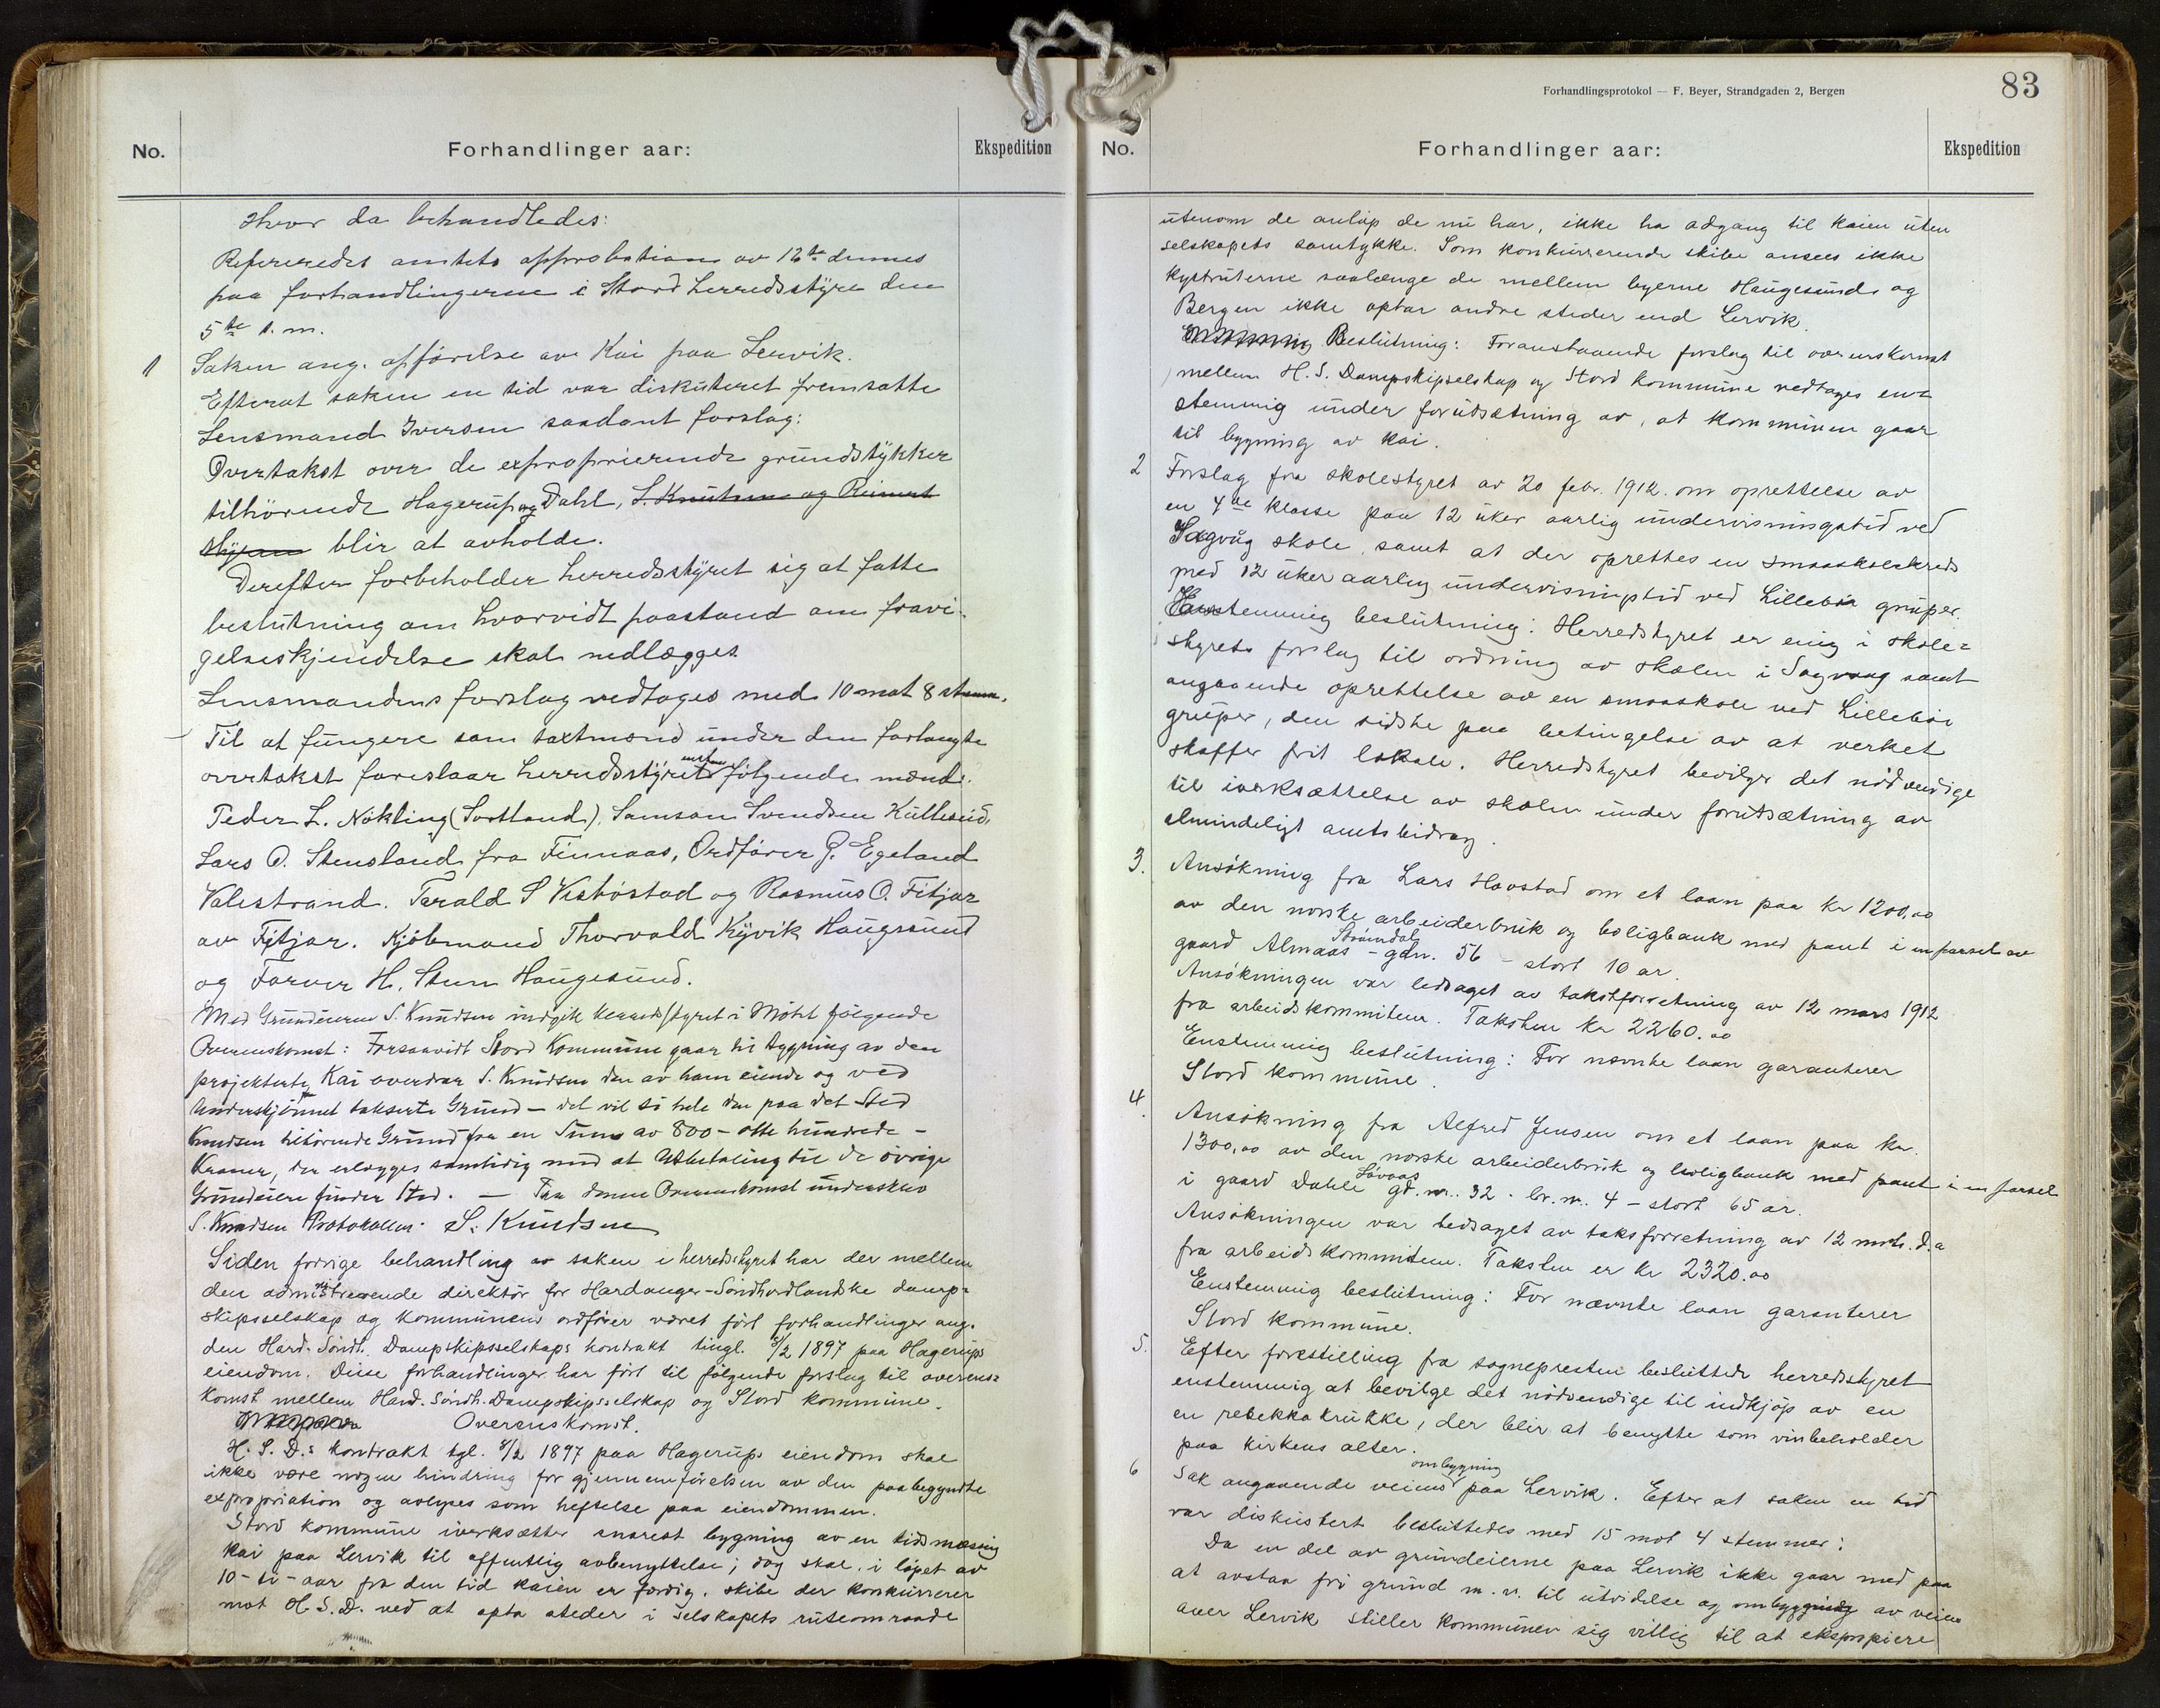 No.
Forhandlinger aar:
Ekspedition
Hvor da behandledes:
Refereredes amtets approbation av 12te dennes
paa forhandlingerne i Stord herredsstyre den
5te s. m.
1 Saken ang. opförelse av Kai paa Lervik.
Efterat saken en tid var diskuteret fremsatte
Lensmand Iversen saadant forslag:
Overtakst over de exproprierende grundstykker
tilhörende Hagerup og Dahl, S. Knutsen og Reinert
blir at avholde.
Derefter forbeholder herredsstyret sig at fatte
beslutning om hvorvidt paastand om fravi-
gelseskjendelse skal nedlægges.
Lensmandens forslag vedtages med 10 mot 8 stem.
Til at fungere som taxtmænd under den forlangte
overtakst foreslaar herredsstyret følgende mænd.
Peder L. Nökling (Sortland), Samson Svendsen Kulleseid,
Lars O. Stensland fra Finnaas, Ordförer G. Egeland
Valestrand. Tarald S Vestböstad og Rasmus O. Fitjar
av Fitjar. Kjöbmand Thorvald Kyvik Haugesund
og Farver H. Steen Haugesund.
Med Grundeieren S. Knudsen indgik Herredsstyret i Mötet fölgende
Overenskomst: Forsaavidt Stord Kommune gaar til bygning av den
projekterte Kai overdrar S. Knudsen den av ham eiende og ved
Underskjönnet takserte Grund – det vil si hele den paa det Sted
Knudsen tilhörende Grund for en Sum av 800 – otte hundrede –
Kroner, der erlægges samtidig med at Utbetaling til de övrige
Grundeiere finder Sted. — Paa denne Overenskomst underskrev
S. Knudsen Protokollen. S. Knudsen
Siden forrige behandling av saken i herredsstyret har der mellem
den administrerende direktör for Hardanger-Söndhordlandske damp-
skipsselskap og kommunens ordförer været fört forhandlinger ang.
den Hard. Söndh. Dampskipsselskaps kontrakt tingl. 8/2 1897 paa Hagerups
eiendom. Disse forhandlinger har fört til fölgende forslag til overens=
komst mellem Hard. Söndh. Dampskipsselskap og Stord kommune.
Overenskomst.
H. S. D.s kontrakt tgl. 8/2 1897 paa Hagerups eiendom skal
ikke være nogen hindring for gjennemförelsen av den paabegyndte
expropriation og avlyses som heftelse paa eiendommen.
Stord kommune iverksætter snarest bygning av en tidsmæssig
kai paa Lervik til offentlig avbenyttelse; dog skal, i löpet av
10 – ti – aar fra den tid kaien er færdig, skibe der konkurrerer
mot H. S. D. ved at opta steder i selskapets ruteomraade
Forhandlingsprotokol — F. Beyer, Strandgaden 2, Bergen
83
No.
Forhandlinger aar:
Ekspedition
utenom de anlöp de nu har, ikke ha adgang til kaien uten
selskapets samtykke. Som konkurrerende skibe ansees ikke
kystruterne saalænge de mellem byerne Haugesund og
Bergen ikke optar andre steder end Lervik.
Beslutning: Foranstaaende forslag til overenskomst
mellem H. S. Dampskipsselskap og Stord kommune vedtages en=
stemmig under forutsætning av, at kommunen gaar
til bygning av kai.
2 Forslag fra skolestyret av 20 febr. 1912 om oprettelse av
en 4de klasse paa 12 uker aarlig undervisningstid ved
Sagvåg skole, samt at der oprettes en smaaskolekreds
med 12 uker aarlig undervisningstid ved Lillebö gruper.
Enstemmig beslutning: Herredsstyret er enig i skole=
styrets forslag til ordning av skolen i Sagvaag samt
angaaende oprettelse av en smaaskole ved Lillebö
gruper, den sidste paa betingelse av at verket
skaffer frit lokale. Herredstyret bevilger det nödvendige
til iverksættelse av skolen under forutsætning av
almindeligt amtsbidrag.
3. Ansökning fra Lars Hovstad om et laan paa kr 1200,00
av den norske arbeiderbruk og boligbank med pant i en parsel av
gaard Almaas Ströindal – gdn. 56 – stort 10 ar.
Ansökningen var ledsaget av takstforretning av 12 mars 1912
fra arbeidskommiteen. Taksten kr 2260.00
Enstemmig beslutning: For nævnte laan garanterer
Stord kommune.
4. Ansökning fra Alfred Jensen om et laan paa kr.
1300,00 av den norske arbeiderbruk og boligbank med pant i en parsel
i gaard Dahle Lövaas gd. nr. 32 . br. nr. 4 – stort 65 ar.
Ansökningen var ledsaget av taksforretning av 12 mrts. d.a
fra arbeidskommiteen. Taksten er kr 2320.00
Enstemmig beslutning: For nævnte laan garanterer
Stord kommune.
5. Efter forestilling fra sognepresten besluttede herredsstyret
enstemmig at bevilge det nödvendige til indkjöp av en
en rebekkakrukke, der blir at benytte som vinbeholder
paa kirkens alter.
6 Sak angaaende veiens ombygning paa Lervik. Efter at saken en tid
var diskutert besluttedes med 15 mot 4 stemmer:
Da en del av grundeierne paa Lervik ikke gaar med paa
at avstaa fri grund m. v. til utvidelse og ombygning av veien
over Lervik stiller kommunen sig villig til at ekspropiere